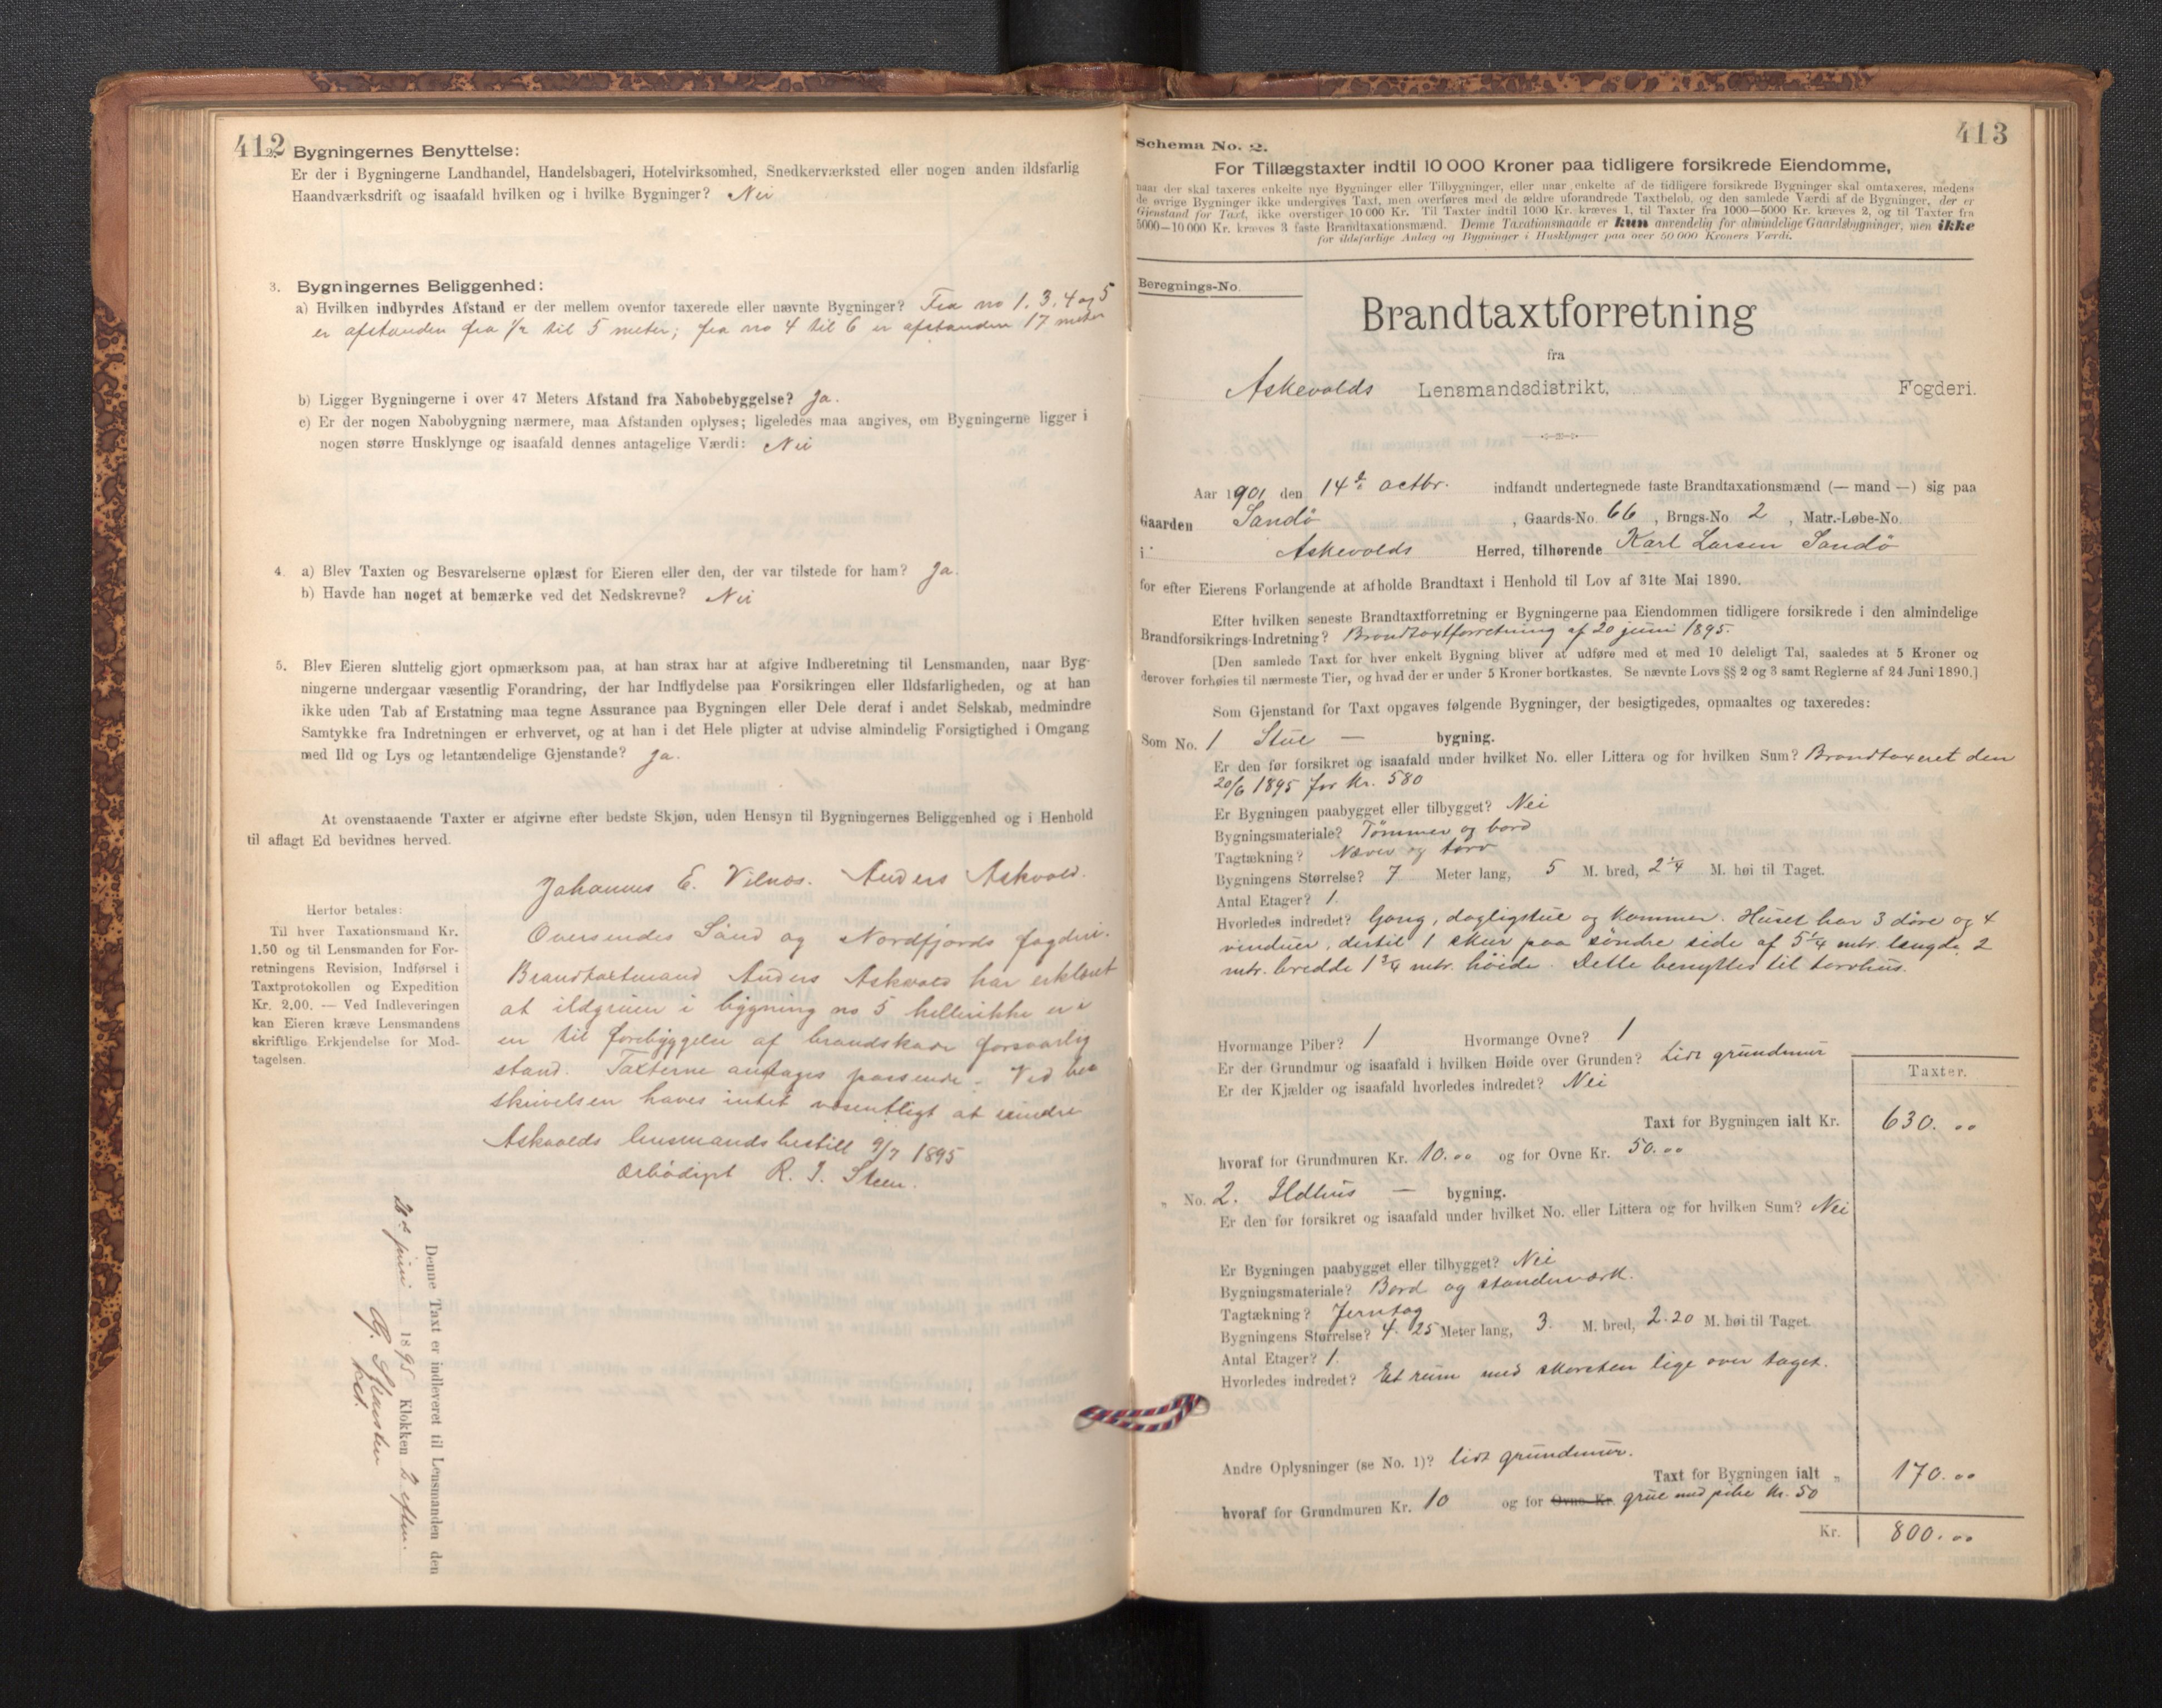 412
2. Bygningernes Benyttelse:
Er der i Bygningerne Landhandel, Handelsbageri, Hotelvirksomhed, Snedkerværksted eller nogen anden ildsfarlig
Haandværksdrift og isaafald hvilken og i hvilke Bygninger? Nei
3. Bygningernes Beliggenhed:
a) Hvilken indbyrdes Afstand er der mellem ovenfor taxerede eller nævnte Bygninger? Fra no 1. 3. 4 og 5
er afstanden fra 1/2 til 5 meter; fra no 4 til 6 er afstanden 17 meter
b) Ligger Bygningerne i over 47 Meters Afstand fra Nabobebyggelse? Ja.
c) Er der nogen Nabobygning nærmere, maa Afstanden oplyses; ligeledes maa angives, om Bygningerne ligger i
nogen større Husklynge og isaafald dennes antagelige Værdi: Nei
4. a) Blev Taxten og Besvarelserne oplæst for Eieren eller den, der var tilstede for ham? Ja.
b) Havde han noget at bemærke ved det Nedskrevne? Nei
5. Blev Eieren sluttelig gjort opmærksom paa, at han strax har at afgive Indberetning til Lensmanden, naar Byg-
ningerne undergaar væsentlig Forandring, der har Indflydelse paa Forsikringen eller Ildsfarligheden, og at han
ikke uden Tab af Erstatning maa tegne Assurance paa Bygningen eller Dele deraf i andet Selskab, medmindre
Samtykke fra Indretningen er erhvervet, og at han i det Hele pligter at udvise almindelig Forsigtighed i Omgang
med Ild og Lys og letantændelige Gjenstande? Ja.
At ovenstaaende Taxter er afgivne efter bedste Skjøn, uden Hensyn til Bygningernes Beliggenhed og i Henhold
til aflagt Ed bevidnes herved.
Johannes E. Vilnæs. Anders Askvold.
Herfor betales:
Til hver Taxationsmand Kr.
1.50 og til Lensmanden for For-
retningens Revision, Indførsel i
Taxtprotokollen og Expedition
Kr. 2.00. — Ved Indleveringen
kan Eieren kræve Lensmandens
skriftlige Erkjendelse for Mod-
tagelsen.
Oversendes Sønd og Nordfjords fogderi.
Brandtaxtmand Anders Askvold har erklæret
at ildgruen i bygning no 5 hellerikke er i
en til forebyggelse af brandskade forsvarlig
stand. Taxterne antages passende. Ved be
skrivelsen haves intet væsentligt at erindre
Askvolds lensmandsbestill 9/7 1895
Ærbödigst R. J. Steen.
Denne Taxt er indleveret til Lensmanden den
20de juni 1895 Klokken 2 eftm.
413
Schema No. 2.
For Tillægstaxter indtil 10 000 Kroner paa tidligere forsikrede Eiendomme,
naar der skal taxeres enkelte nye Bygninger eller Tilbygninger, eller naar enkelte af de tidligere forsikrede Bygninger skal omtaxeres, medens
de øvrige Bygninger ikke undergives Taxt, men overføres med de ældre uforandrede Taxtbeløb, og den samlede Værdi af de Bygninger, der er
Gjenstand for Taxt, ikke overstiger 10 000 Kr. Til Taxter indtil 1000 Kr. kræves 1, til Taxter fra 1000—5000 Kr. kræves 2, og til Taxter fra
5000—10 000 Kr. kræves 3 faste Brandtaxationsmænd. Denne Taxationsmaade er kun anvendelig for almindelige Gaardsbygninger, men ikke
for ildsfarlige Anlæg og Bygninger i Husklynger paa over 50 000 Kroners Værdi.
Beregnings-No.
Brandtaxtforretning
fra
Askevolds Lensmandsdistrikt, Fogderi.
Aar 1901 den 14de octbr. indfandt undertegnede faste Brandtaxationsmænd (— mand —) sig paa
Gaarden Sandö, Gaards-No. 66, Brugs-No 2, Matr.-Løbe-No.
i Askevolds Herred, tilhørende Karl Larsen Sandö
for efter Eierens Forlangende at afholde Brandtaxt i Henhold til Lov af 31te Mai 1890.
Efter hvilken seneste Brandtaxtforretning er Bygningerne paa Eiendommen tidligere forsikrede i den almindelige
Brandforsikrings-Indretning? Brandtaxtforretning af 20 juni 1895.
[Den samlede Taxt for hver enkelt Bygning bliver at udføre med et med 10 deleligt Tal, saaledes at 5 Kroner og
derover forhøies til nærmeste Tier, og hvad der er under 5 Kroner bortkastes. Se nævnte Lovs §§ 2 og 3 samt Reglerne af 24 Juni 1890.]
Som Gjenstand for Taxt opgaves følgende Bygninger, der besigtigedes, opmaaltes og taxeredes:
Som No. 1 Stue — bygning.
Er den før forsikret og isaafald under hvilket No. eller Littera og for hvilken Sum? Brandtaxeret den
20/6 1895 for Kr. 580
Er Bygningen paabygget eller tilbygget? Nei
Bygningsmateriale? Tömmer og bord
Tagtækning? Næver og torv
Bygningens Størrelse? 7 Meter lang, 5 M. bred, 2 1/4 M. høi til Taget.
Antal Etager? 1.
Hvorledes indredet? Gang, dagligstue og Kammer. Huset har 3 döre og 4
vinduer, dertil 1 skur paa söndre side af 5 1/4 mtr. længde, 2
mtr. bredde 1 3/4 mtr. höide. Dette benyttes til torvhus.
Hvormange Piber? 1 Hvormange Ovne? 1
Er der Grundmur og isaafald i hvilken Høide over Grunden? Lidt grundmur
Er der Kjælder og isaafald hvorledes indredet? Nei
Taxter.
Taxt for Bygningen ialt Kr. 630.00
hvoraf for Grundmuren Kr. 10.00 og for Ovne Kr. 50.00
„ No. 2. Ildhus — bygning.
Er den før forsikret og isaafald under hvilket No. eller Littera og for hvilken Sum? Nei
Er Bygningen paabygget eller tilbygget? Nei
Bygningsmateriale? Bord og standerværk.
Tagtækning? Jerntag
Bygningens Størrelse? 4.25 Meter lang, 3. M. bred, 2.20 M. høi til Taget.
Antal Etager? 1.
Hvorledes indredet? Et rum med skorsten lige over taget.
Andre Oplysninger (se No. 1)? lidt grundmur.
Taxt for Bygningen ialt „ 170.00
hvoraf for Grundmuren Kr. 10 og for Ovne Kr. grue med pibe Kr. 50
Kr. 800.00